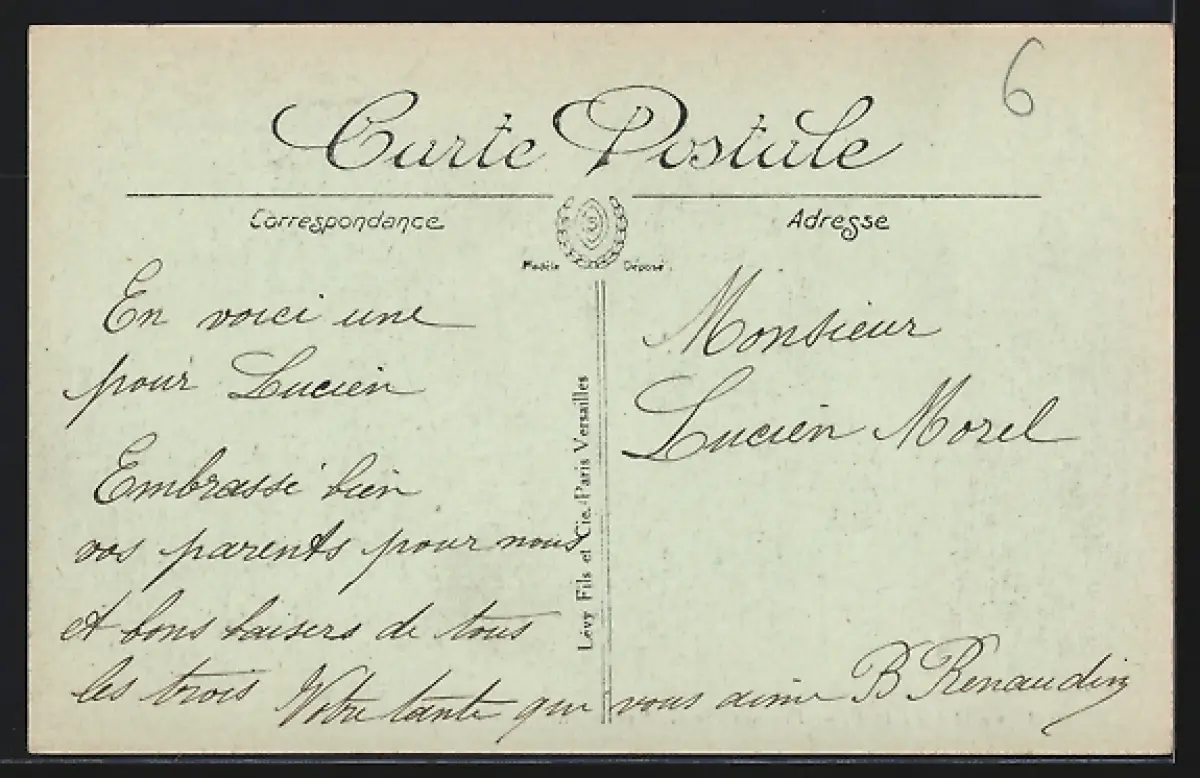 6
Carte Postale
Correspondance
Adresse
Modèle Déposé
En voici une
pour Lucien
Embrassé bien
vos parents pour nous
et bons baisers de tous
les trois Votre tante qui vous aime B Renaudin
Lévy Fils et Cie. Paris Versailles
Monsieur
Lucien Morel